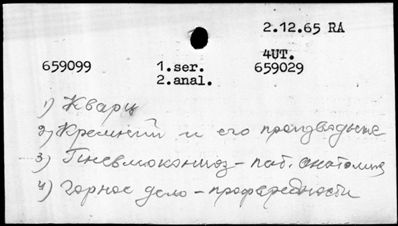 2.12.65 RA
4UT.
659099 1.ser. 659029
2.anal.
1) Кварц
2) Кремний и его производные
3) Пневмокониоз - пат. анатомия
4) Горное дело - профвредности